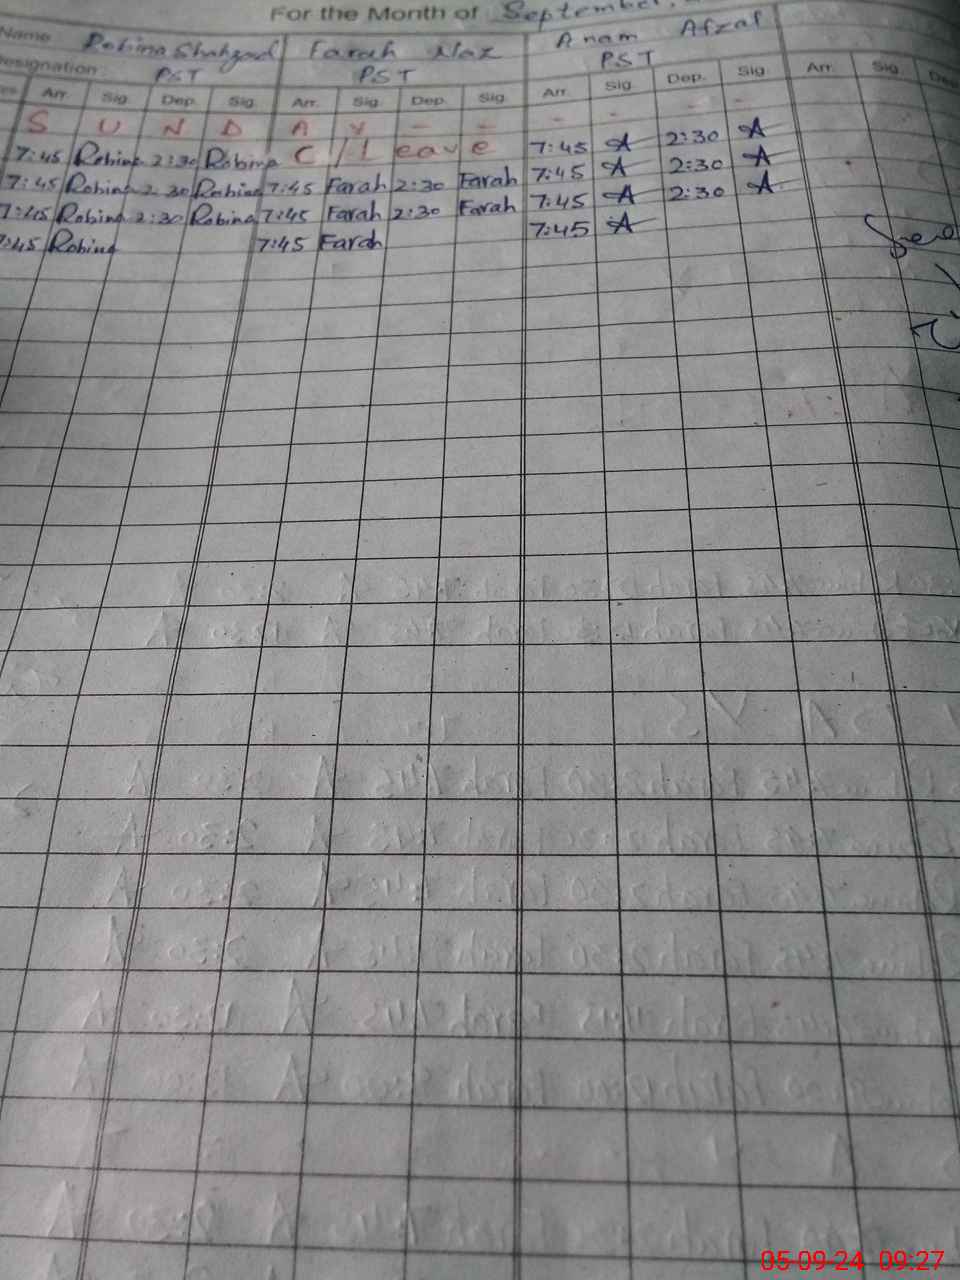 For the Month of September.
Name Robina Shahzad Farah Naz Anam Afzal
Designation: PST PST PST
Arr. Sig. Dep. Sig. Arr. Sig. Dep. Sig. Arr. Sig. Dep. Sig. Arr. Sig. Dep.
S U N D A Y - - - - - -
7:45 Robina 2:30 Robina C/Leave 7:45 A 2:30 A
7:45 Robina 2:30 Robina 7:45 Farah 2:30 Farah 7:45 A 2:30 A
7:45 Robina 2:30 Robina 7:45 Farah 2:30 Farah 7:45 A 2:30 A
7:45 Robina 7:45 Farah 7:45 A
05-09-24 09:27